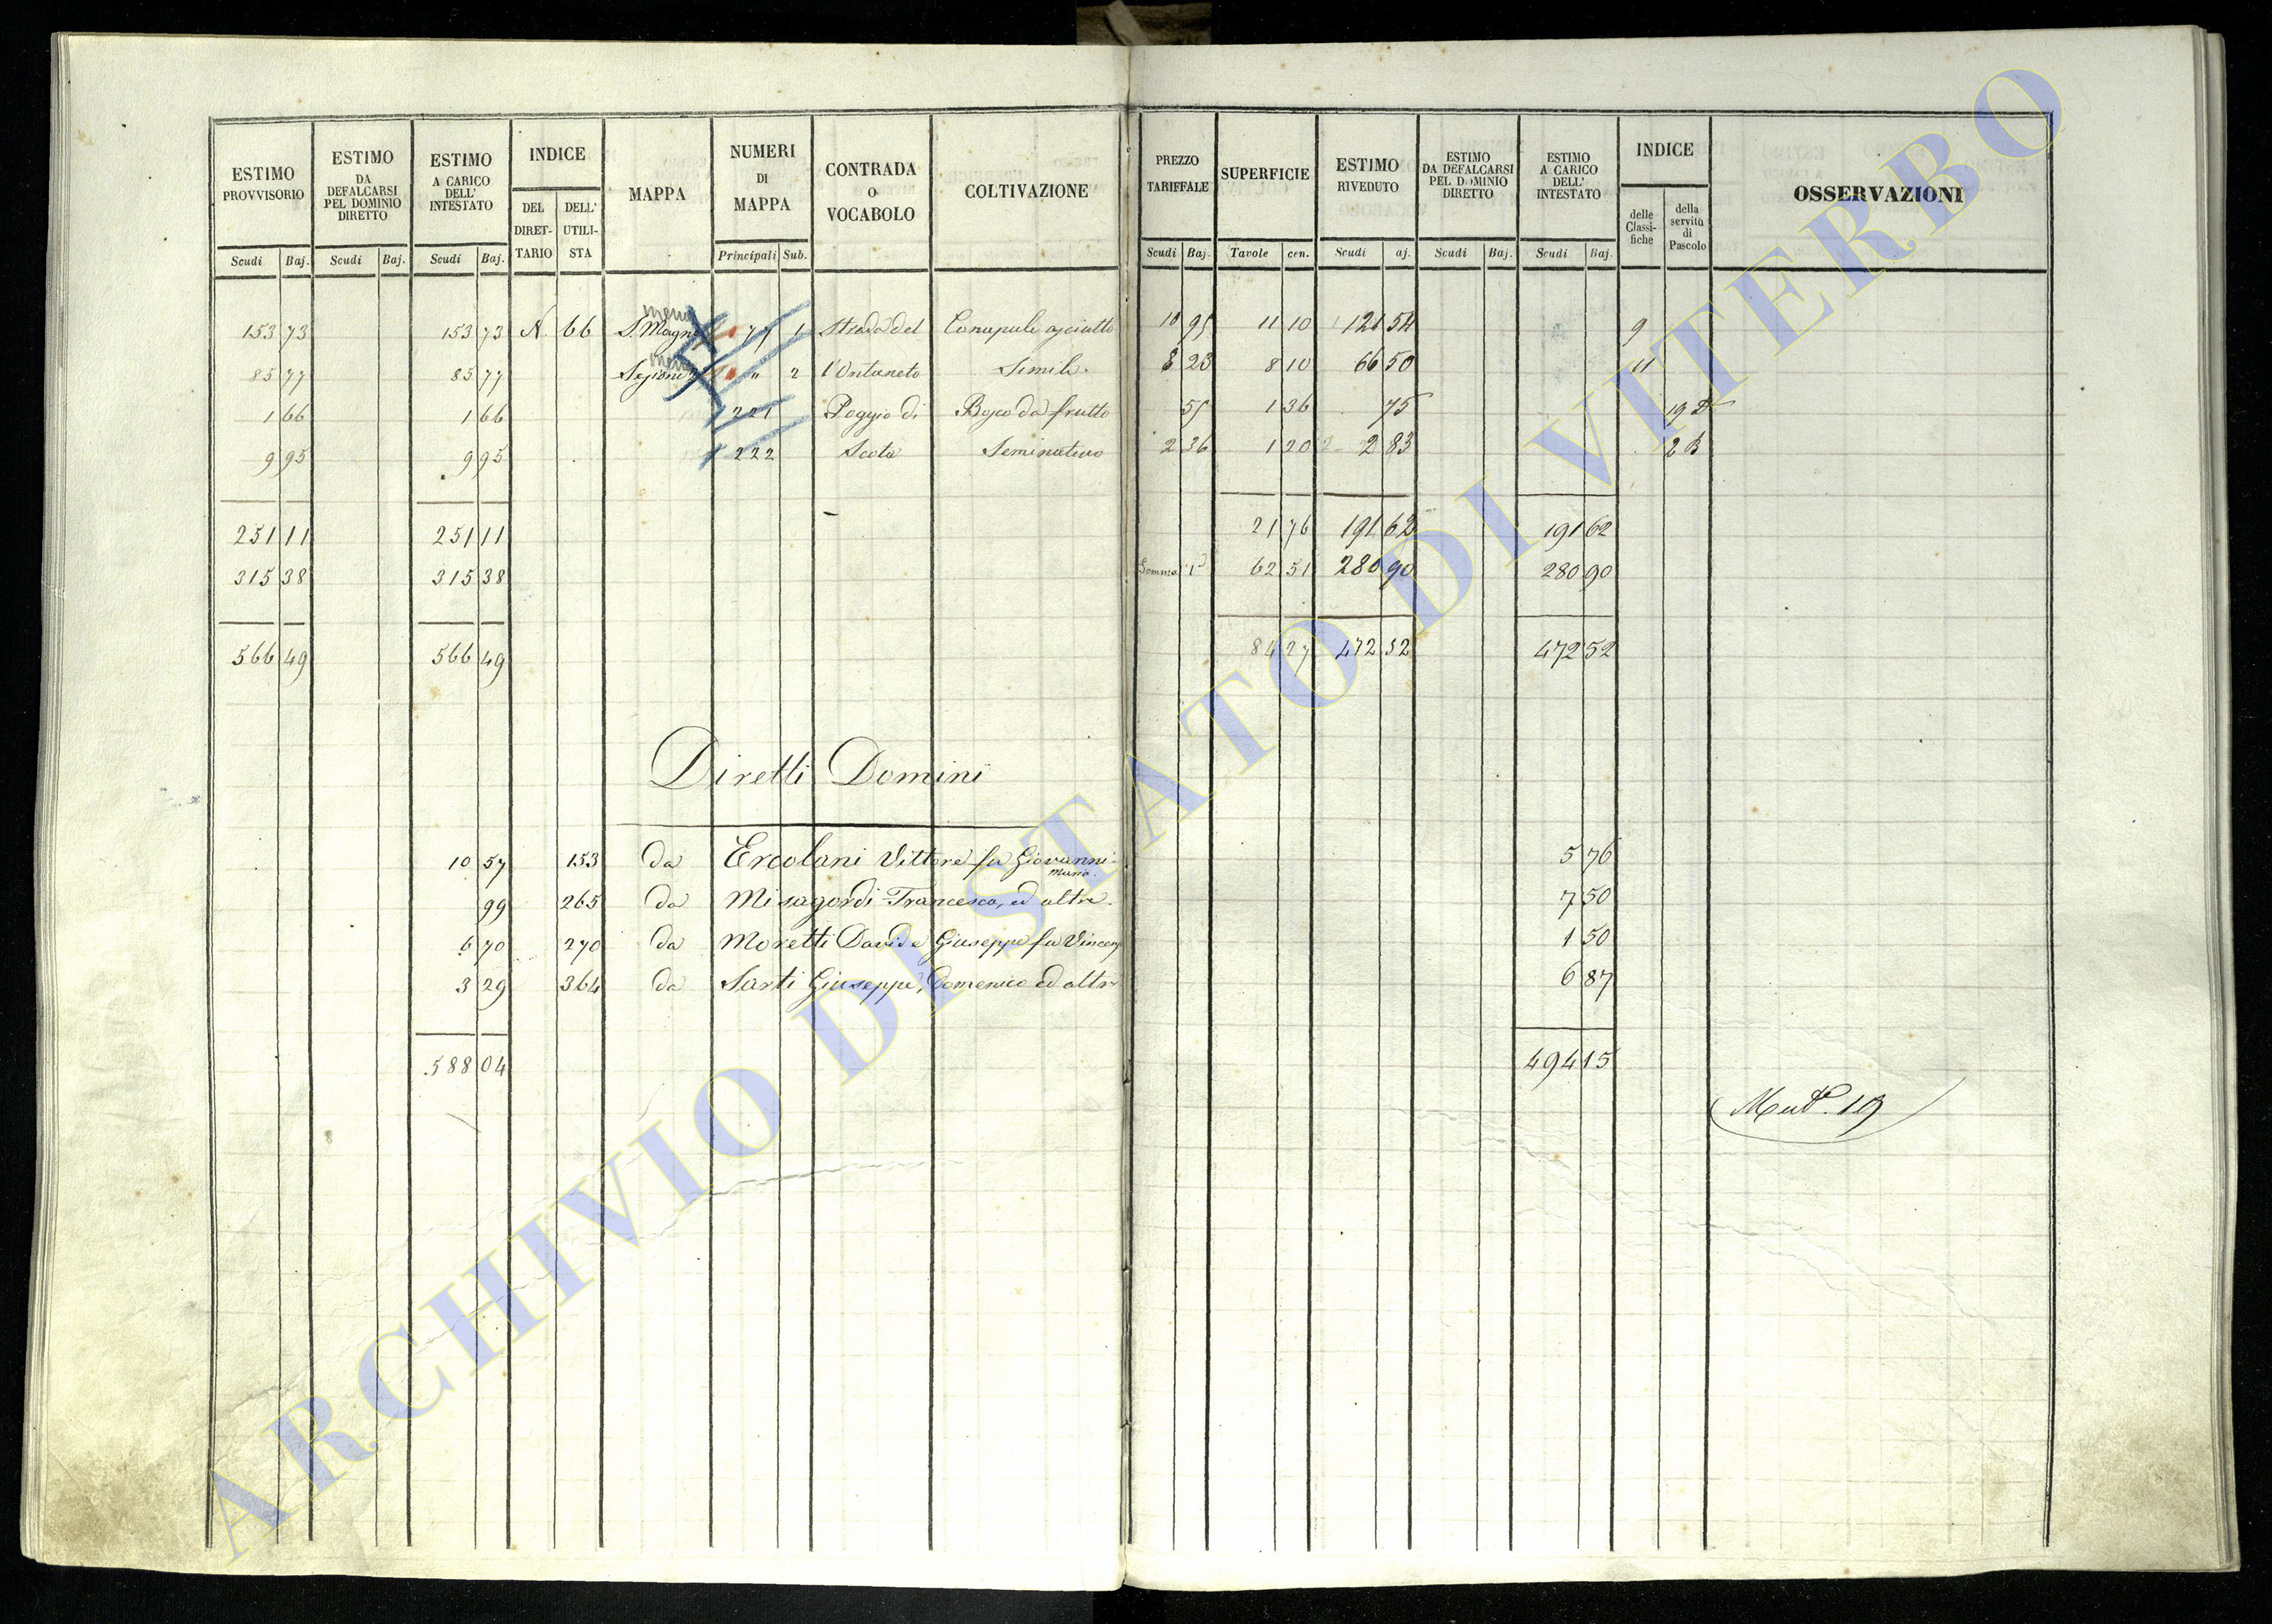 ESTIMO PROVVISORIO | ESTIMO DA DEFALCARSI PEL DOMINIO DIRETTO | ESTIMO A CARICO DELL' INTESTATO | INDICE | MAPPA | NUMERI DI MAPPA | CONTRADA O VOCABOLO | COLTIVAZIONE | PREZZO TARIFFALE | SUPERFICIE | ESTIMO RIVEDUTO | ESTIMO DA DEFALCARSI PEL DOMINIO DIRETTO | ESTIMO A CARICO DELL' INTESTATO | INDICE | OSSERVAZIONI
DEL DIRET-TARIO | DELL' UTILI-STA | delle Classi-fiche | della servitù di Pascolo
Scudi | Baj. | Scudi | Baj. | Scudi | Baj. | Principali | Sub. | Scudi | Baj. | Tavole | cen. | Scudi | aj. | Scudi | Baj. | Scudi | Baj.
153 73 | 153 73 | N. 66 | S. Magno | 77 | 1 | Strada del | Canapule asciutto | 10 95 | 11 10 | 121 54 | 9
85 77 | 85 77 | " | 2 | l'Ontaneto | Simile. | 8 23 | 8 10 | 66 50 | 11
1 66 | 1 66 | 221 | Poggio di | Bosco da frutto | 55 | 1 36 | 75 | 19 D
9 95 | 9 95 | 222 | Scota | Seminativo | 2 36 | 1 20 | 2 83 | 2 B
251 11 | 251 11 | 21 76 | 191 62 | 191 62
315 38 | 315 38 | Somma 1ª | 62 51 | 280 90 | 280 90
566 49 | 566 49 | 84 27 | 472 52 | 472 52
Diretti Domini
10 57 | 153 | da | Ercolani Vittore fu Giovanni- | 5 76
Maria.
99 | 265 | da | Misagordi Francesco, ed altre. | 7 50
6 70 | 270 | da | Moretti David e Giuseppe fu Vincenz | 1 50
3 29 | 364 | da | Sarti Giuseppe, Domenico ed altri | 6 87
588 04 | 494 15
Mutª. 19
ARCHIVIO DI STATO DI VITERBO